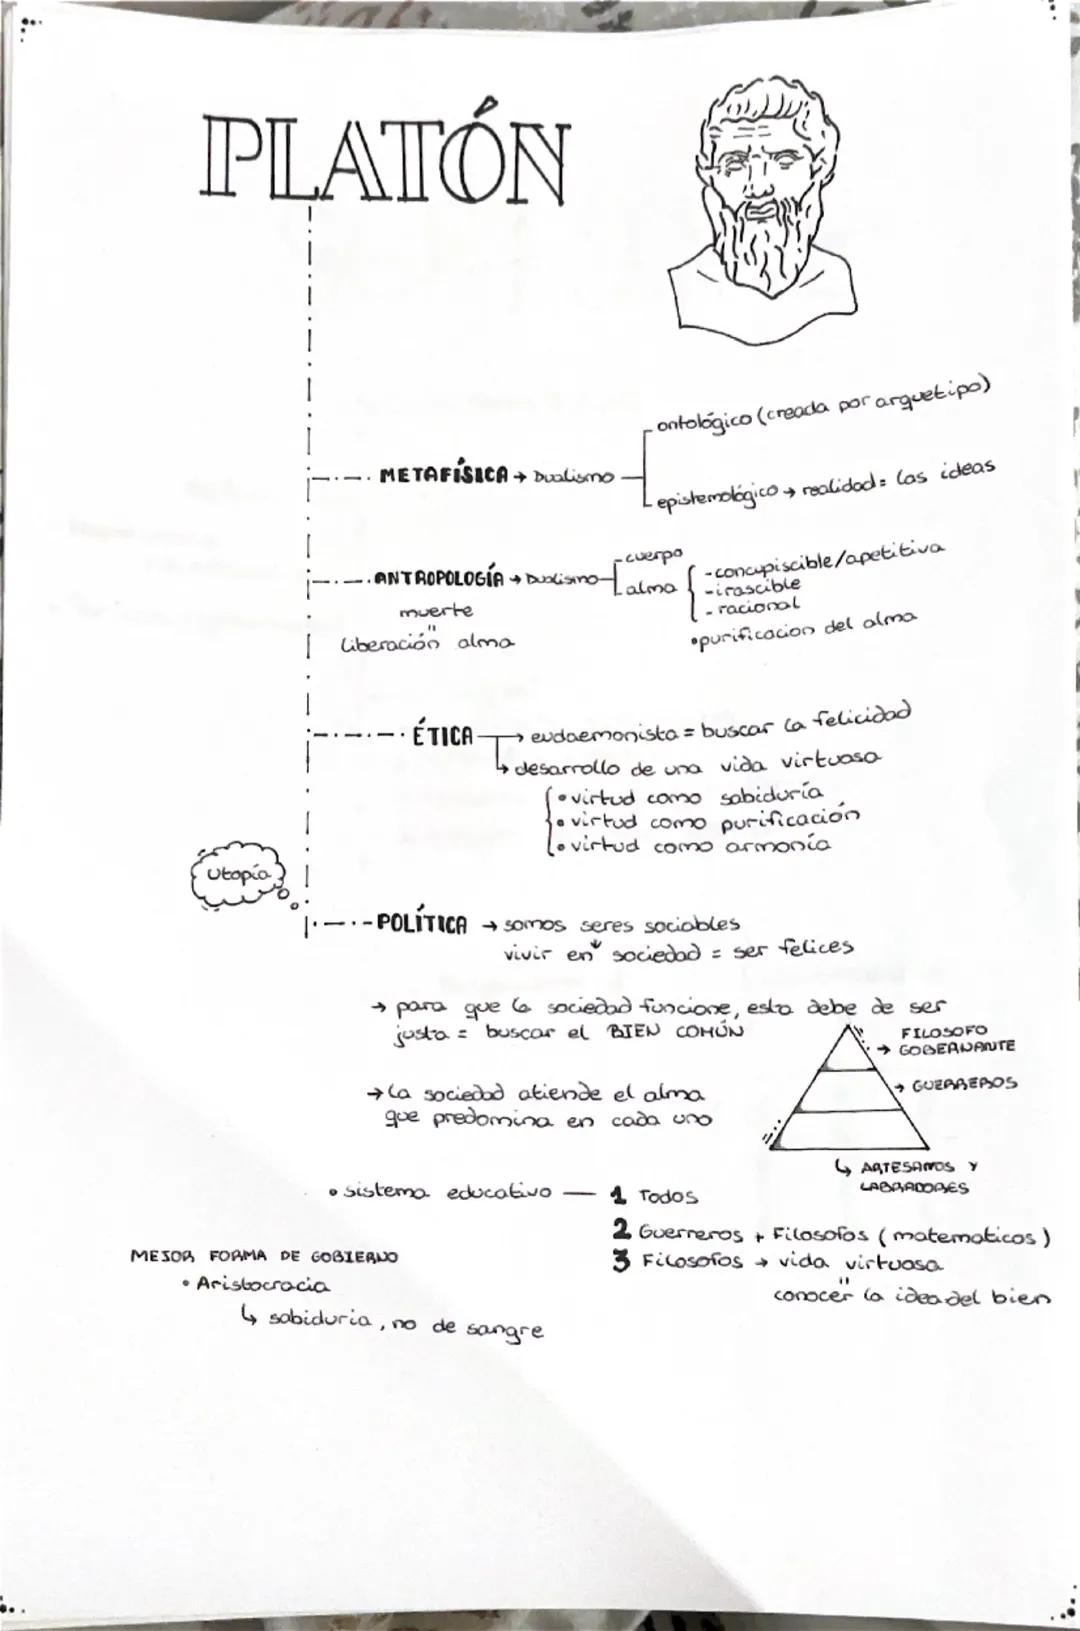 PLATÓN
ontológico (creada por arquetipo)
METAFÍSICA → Dualismo
epistemológico → realidad = las ideas
ANTROPOLOGÍA → Dualismo
cuerpo
alma
- concupiscible/apetitiva
- irascible
- racional
• purificacion del alma
muerte
"
liberación alma
ÉTICA → eudaemonista = buscar la felicidad
↳ desarrollo de una vida virtuosa
• virtud como sabiduría
• virtud como purificación
• virtud como armonía
Utopía
POLÍTICA → somos seres sociables
vivir en sociedad = ser felices
→ para que la sociedad funcione, esta debe de ser
justa = buscar el BIEN COMÚN
→ FILOSOFO
GOBERNANTE
→ GUERREROS
↳ ARTESANOS Y
LABRADORES
→ La sociedad atiende el alma
que predomina en cada uno
• sistema educativo — 1 Todos
2 Guerreros + Filosofos (matematicos)
3 Filosofos → vida virtuosa
"
conocer la idea del bien
MEJOR FORMA DE GOBIERNO
• Aristocracia
↳ sabiduria, no de sangre